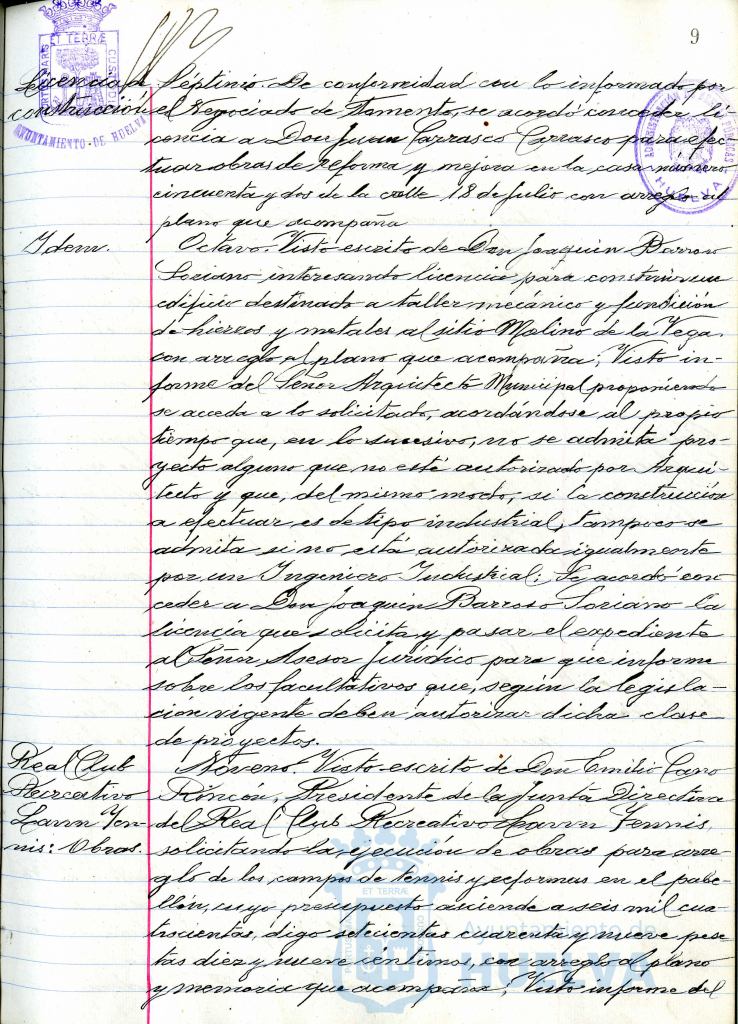 9
PORTUS MARIS ET TERRÆ CUSTODIA
AYUNTAMIENTO - DE HUELVA
HUELVA
Licencia de
construcción
Séptimo. De conformidad con lo informado por
el Negociado de Fomento, se acordó conceder li
cencia a Don Juan Carrasco Carrasco para efec
tuar obras de reforma y mejora en la casa número
cincuenta y dos de la calle 18 de Julio con arreglo al
plano que acompaña
Idem.
Octavo. Visto escrito de Don Joaquin Barroso
Soriano interesando licencia para construir un
edificio destinado a taller mecánico y fundición
de hierros y metales al sitio Molino de la Vega,
con arreglo al plano que acompaña; Visto in-
forme del Señor Arquitecto Municipal proponiendo
se acceda a lo solicitado, acordándose al propio
tiempo que, en lo sucesivo, no se admita pro-
yecto alguno que no esté autorizado por Arqui-
tecto y que, del mismo modo, si la construcción
a efectuar es de tipo industrial, tampoco se
admita si no está autorizada igualmente
por un Ingeniero Industrial; Se acordó con
ceder a Don Joaquin Barroso Soriano la
licencia que solicita y pasar el expediente
al Señor Asesor Jurídico para que informe
sobre los facultativos que, según la legisla-
ción vigente deben autorizar dicha clase
de proyectos.
Real Club
Recreativo
Lawn Ten-
nis: Obras.
Noveno. Visto escrito de Don Emilio Cano
Rincón, Presidente de la Junta Directiva
del Real Club Recreativo Lawn Tennis,
solicitando la ejecución de obras para arre-
glo de los campos de tennis y reformas en el pabe-
llón, cuyo presupuesto asciende a seis mil cua
trocientas, digo setecientas cuarenta y nueve pese
tas diez y nueve céntimos, con arreglo al plano
y memoria que acompaña; Visto informe del
Ayuntamiento de
HUELVA